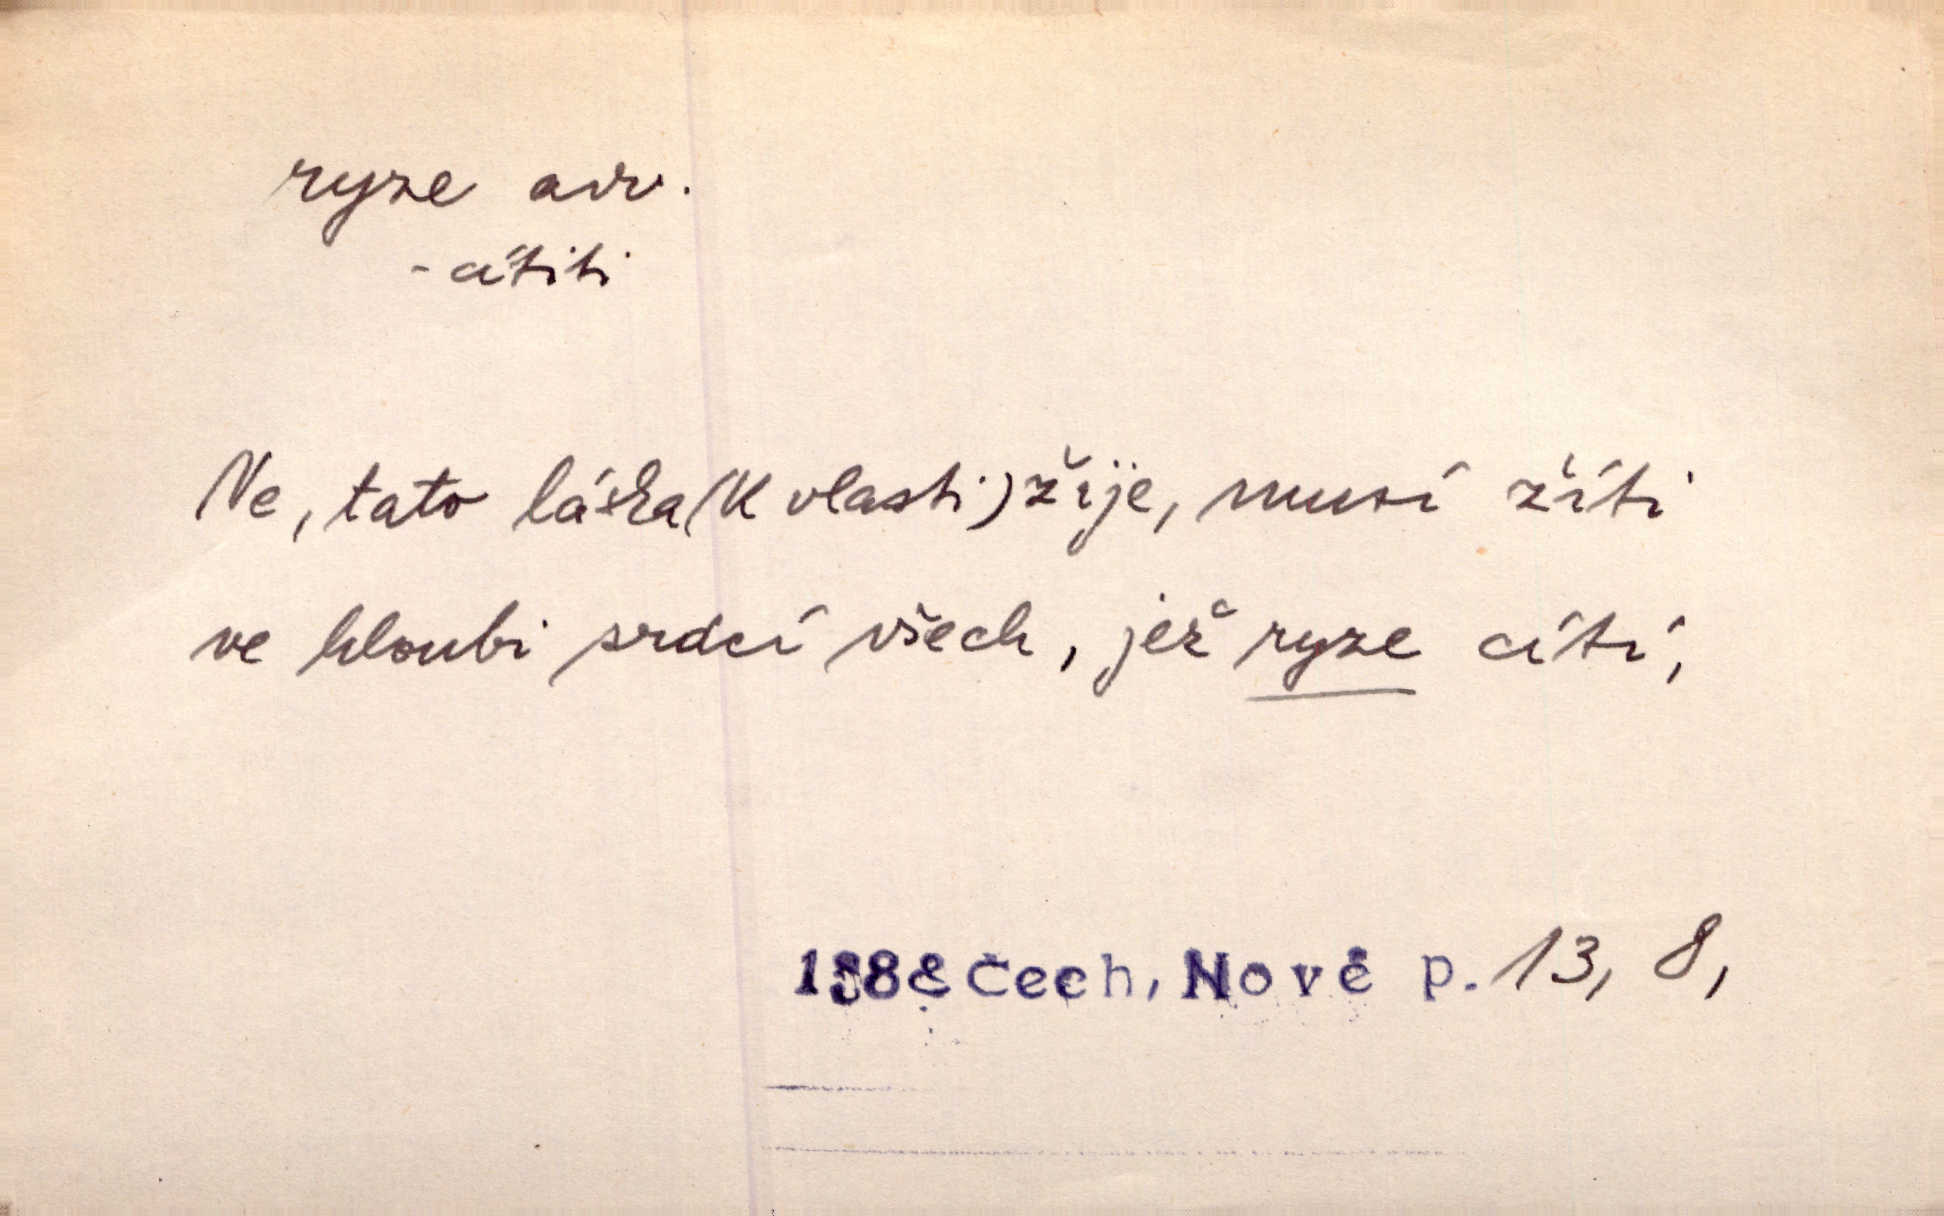 ryze adv.
- cítiti
Ne, tato láska (k vlasti) žije, musí žíti
ve hloubi srdcí všech, jež ryze cítí;
1888 Čech, Nové p. 13, 8,